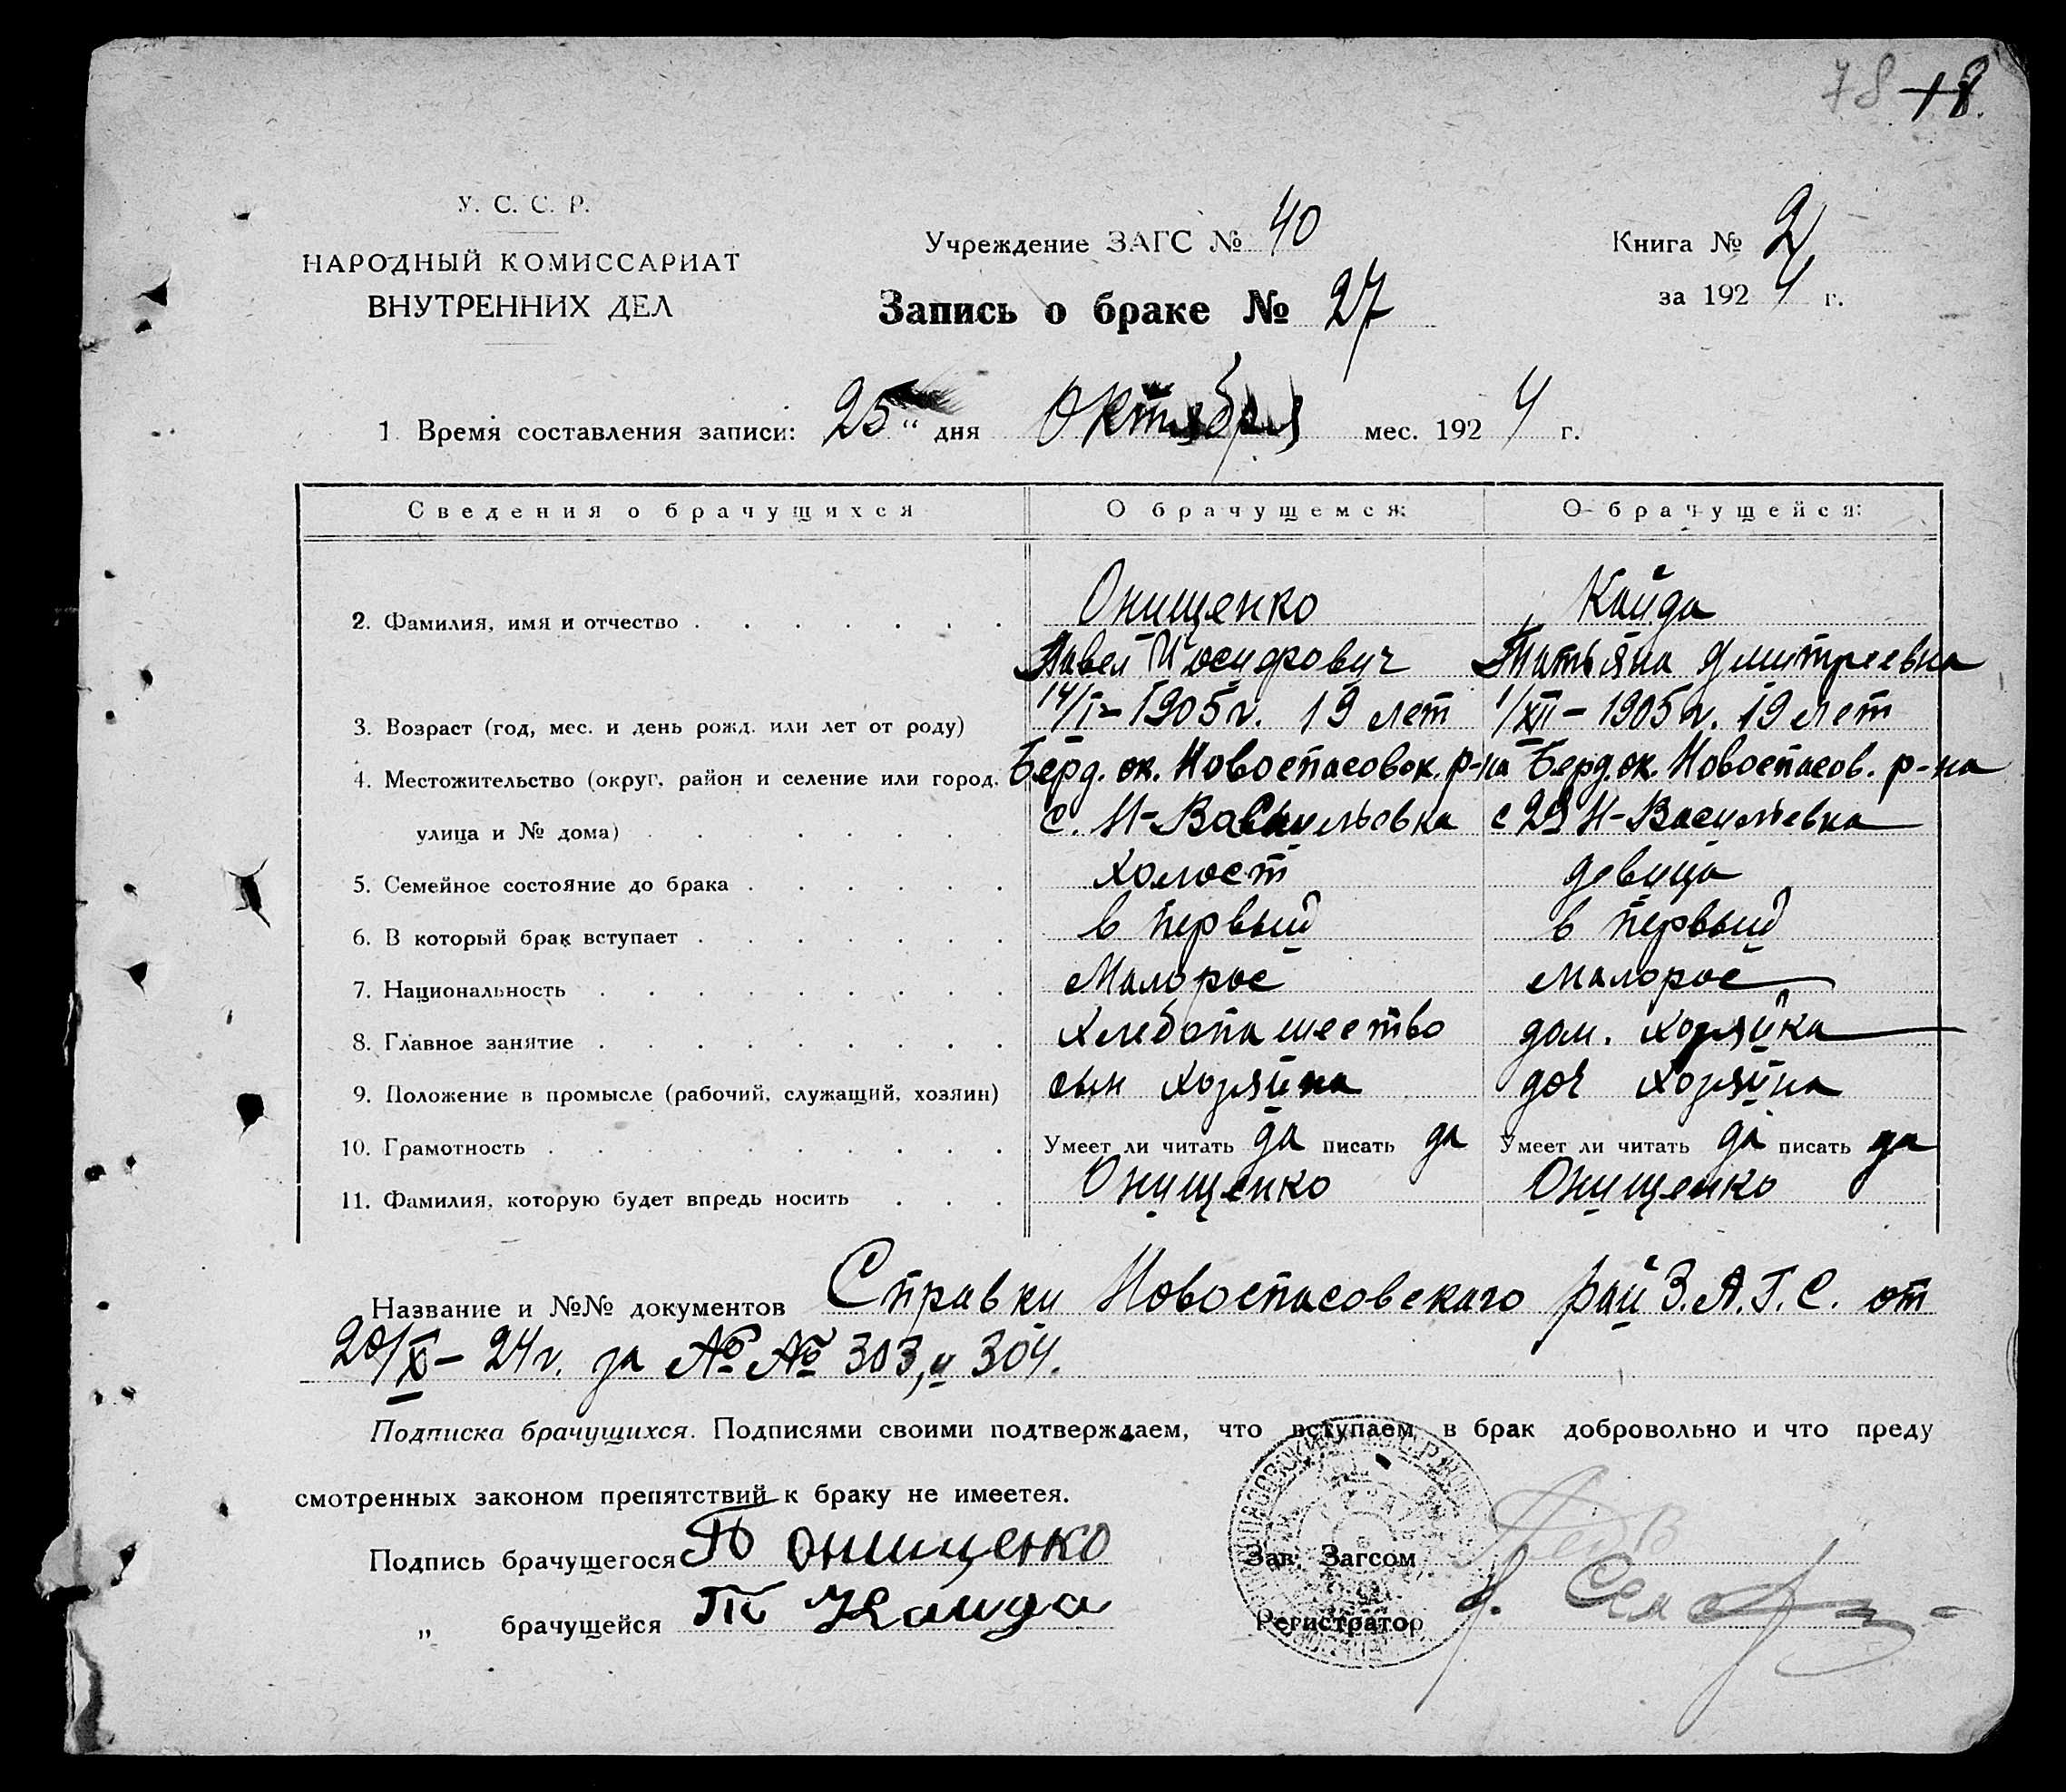 78 18.
У. С. С. Р.
НАРОДНЫЙ КОМИССАРИАТ
ВНУТРЕННИХ ДЕЛ
Учреждение ЗАГС № 40
Запись о браке № 27
Книга № 2
за 1924 г.
1. Время составления записи: 25 “ дня Октября мес. 1924 г.
Сведения о брачущихся О брачущемся: О брачущейся:
2. Фамилия, имя и отчество Онищенко Кайда
Павел Иосифович Татьяна Дмитреевна
3. Возраст (год, мес. и день рожд. или лет от роду) 14/I–1905 г. 19 лет 1/XII–1905 г. 19 лет
4. Местожительство (округ, район и селение или город, Берд. ок. Новоспасовск. р-на Берд. ок. Новоспасов. р-на
улица и № дома) с. Н-Васильовка с Н-Васильевка
5. Семейное состояние до брака холост девица
6. В который брак вступает в первый в первый
7. Национальность Малорос малорос
8. Главное занятие хлебопашество дом. хозяйка
9. Положение в промысле (рабочий, служащий, хозяин) сын хозяина доч хозяина
10. Грамотность Умеет ли читать да писать да Умеет ли читать да писать да
11. Фамилия, которую будет впредь носить Онищенко Онищенко
Название и №№ документов Справки Новоспасовскаго рай З.А.Г.С. от
20/X – 24 г. за №№ 303, и 304.
Подписка брачущихся. Подписями своими подтверждаем, что вступаем в брак добровольно и что преду
смотренных законом препятствий к браку не имеетея.
Подпись брачущегося П Онищенко
Зав. Загсом
„ брачущейся Т Каида
Регистратор